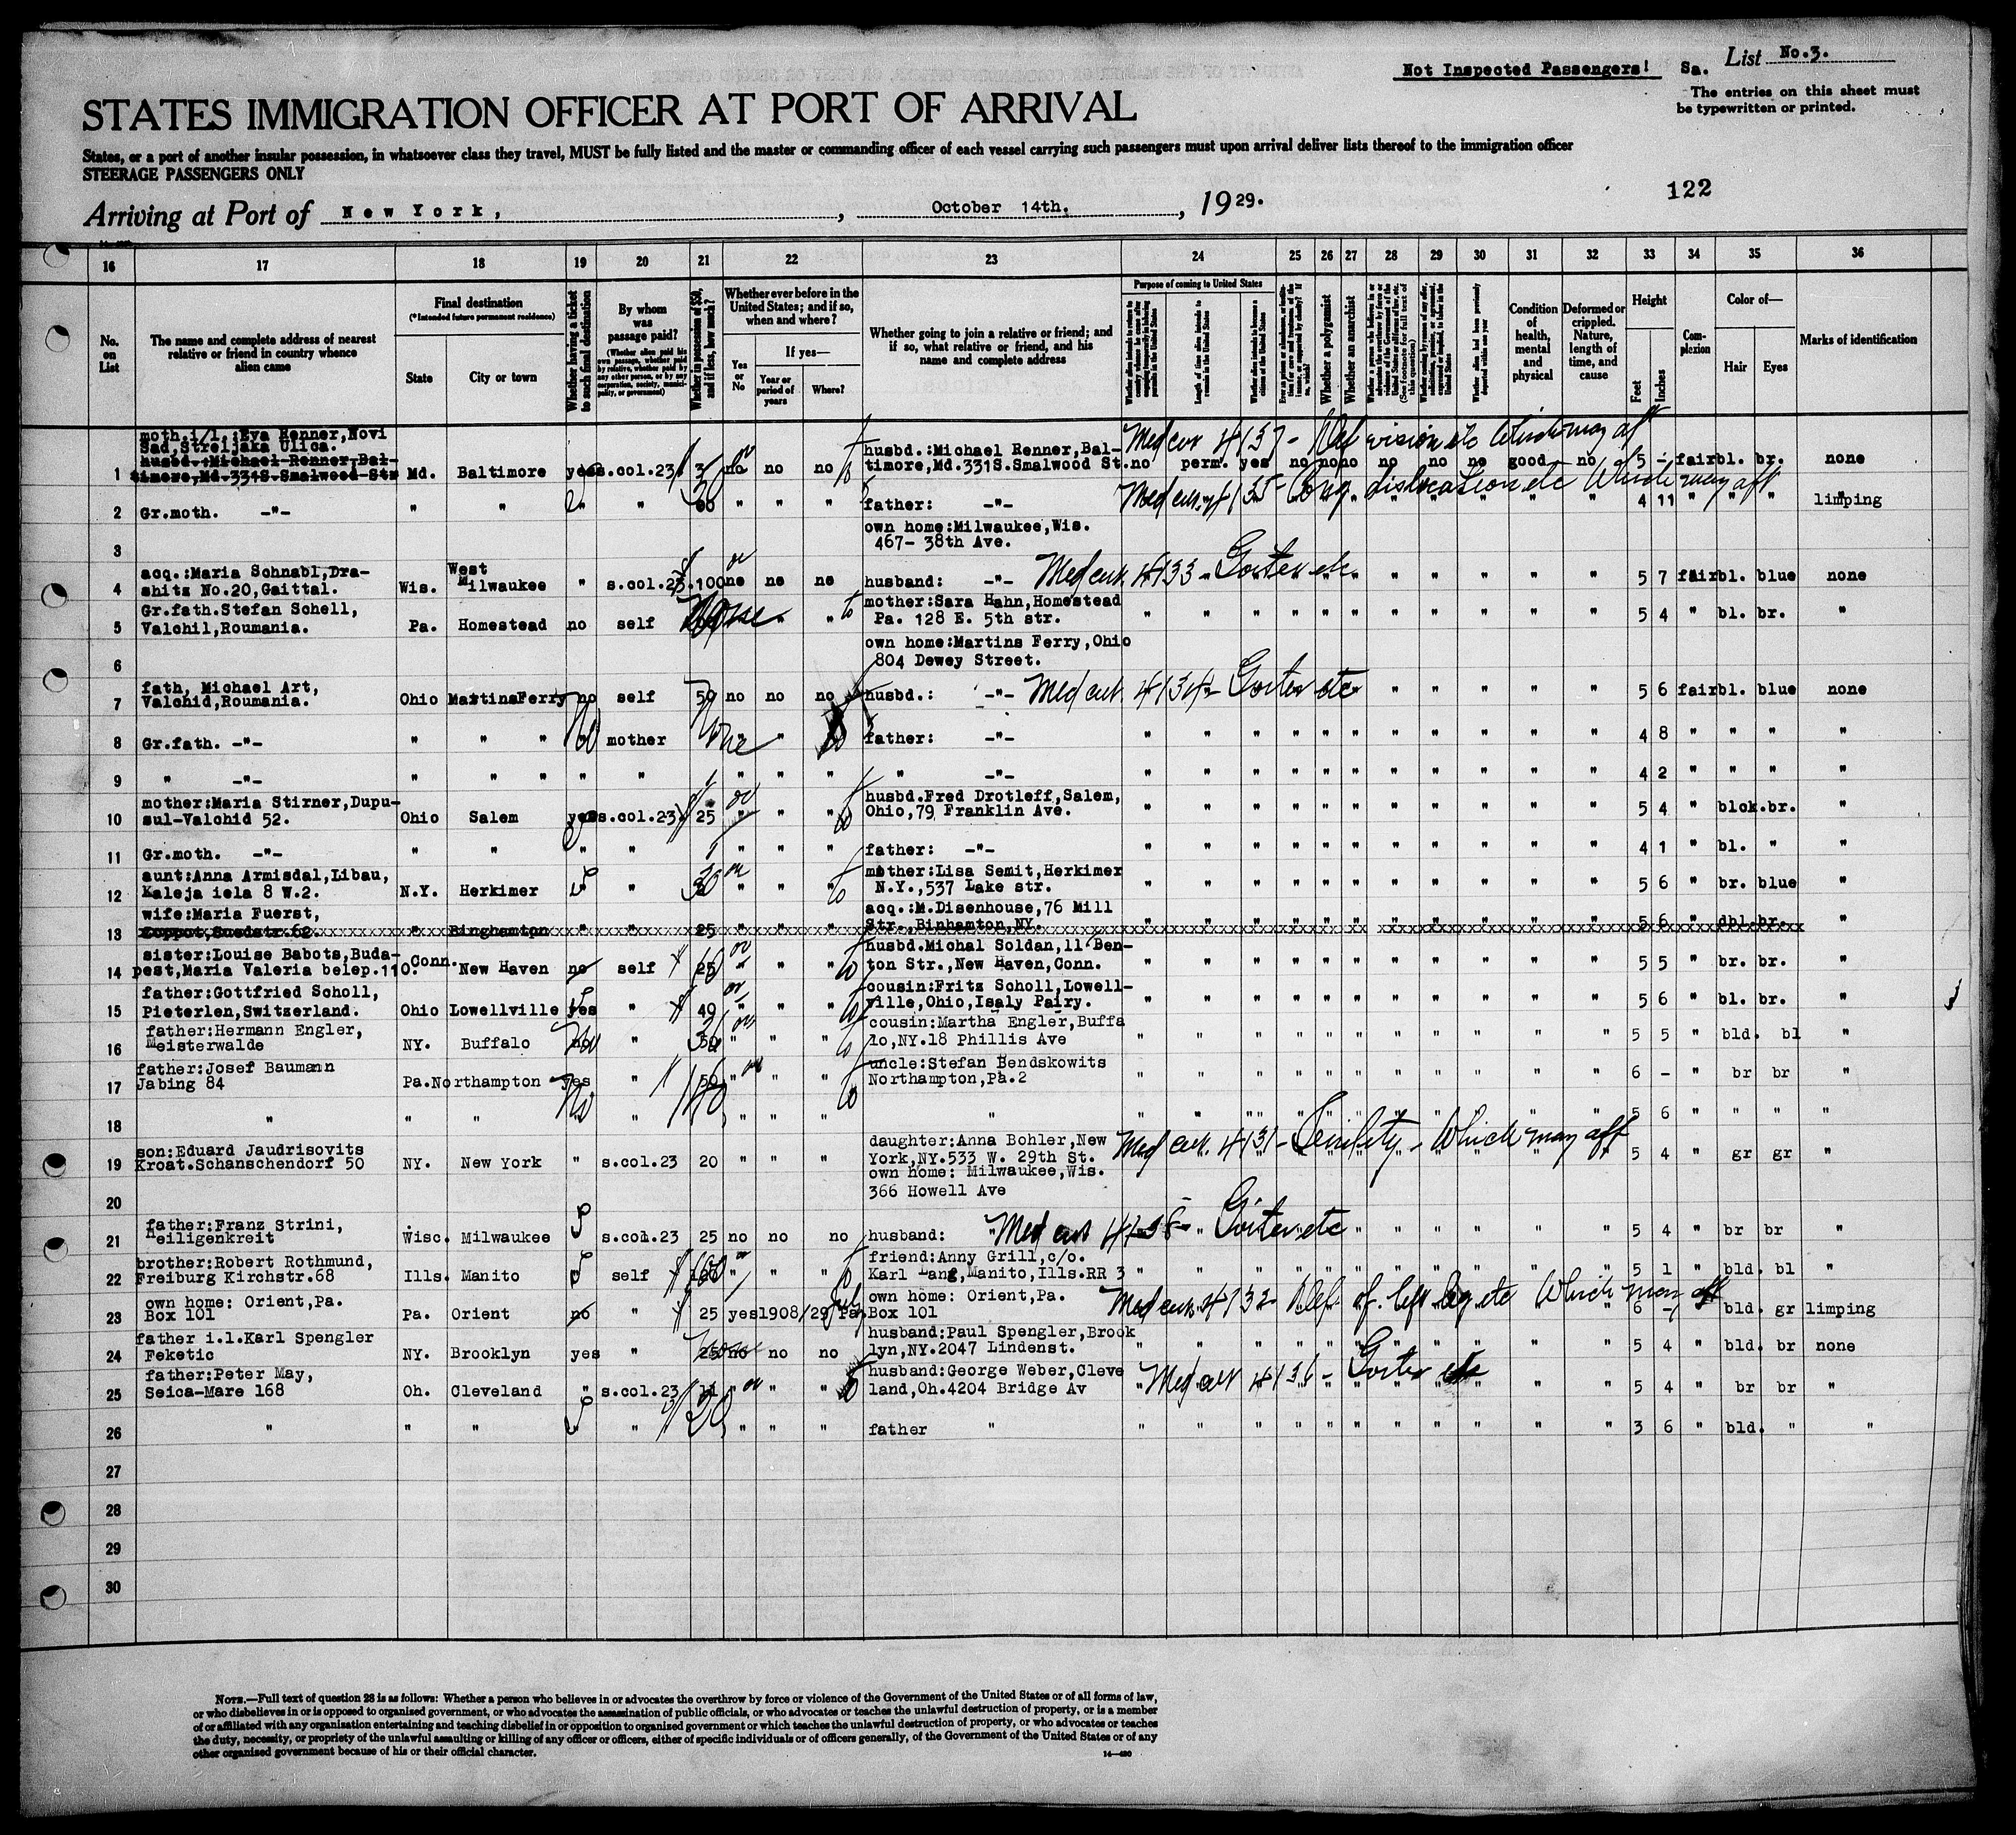 Not Inspected Passengers! Sa. List No.3.
The entries on this sheet must
be typewritten or printed.
STATES IMMIGRATION OFFICER AT PORT OF ARRIVAL
States, or a port of another insular possession, in whatsoever class they travel, MUST be fully listed and the master or commanding officer of each vessel carrying such passengers must upon arrival deliver lists thereof to the immigration officer
STEERAGE PASSENGERS ONLY
122
Arriving at Port of New York, , October 14th. , 1929.
16 17 18 19 20 21 22 23 24 25 26 27 28 29 30 31 32 33 34 35 36
No. on List
The name and complete address of nearest relative or friend in country whence alien came
Final destination
(*Intended future permanent residence)
State
City or town
Whether having a ticket to such final destination
By whom was passage paid?
(Whether alien paid his own passage, whether paid by relative, whether paid by any other person, or by any corporation, society, municipality, or government)
Whether in possession of $50, and if less, how much?
Whether ever before in the United States; and if so, when and where?
Yes or No
If yes—
Year or period of years
Where?
Whether going to join a relative or friend; and if so, what relative or friend, and his name and complete address
Purpose of coming to United States
Length of time alien intends to remain in the United States
Whether alien intends to become a citizen of the United States
Whether a polygamist
Whether an anarchist
Condition of health, mental and physical
Deformed or crippled. Nature, length of time, and cause
Height
Feet
Inches
Complexion
Color of—
Hair
Eyes
Marks of identification
moth.i/l.:Eva Renner,Novi
Sad,Streljaka Ulica.
husbd.:Michael Renner,Bal-
1 timore,Md.331S.Smalwood Str Md. Baltimore yes s.col.23 no no no husbd.:Michael Renner,Bal-
timore,Md.331S.Smalwood St. no perm. yes no no no no no no good no 5 - fair bl. br. none
Med cur 4137 - Def vision etc Which may aff
2 Gr.moth. -"- " " " " " " father: -"- " " " " 4 11 " " " limping
Med cur. 4135 - Cong. dislocation etc Which may aff
own home:Milwaukee,Wis.
467- 38th Ave.
3
acq.:Maria Schnabl,Dra-
4 shitz No.20,Gaittal. Wis. West Milwaukee " s.col.23. 100 no no no husband: -"- " " " " 5 7 fair bl. blue none
Med cur. 4133 - Goiter etc
Gr.fath.Stefan Schell,
5 Valchil,Roumania. Pa. Homestead no self None " " mother:Sara Hahn,Homestead
Pa. 128 E. 5th str. " " " " 5 4 " bl. br. "
own home:Martins Ferry,Ohio
804 Dewey Street.
6
fath, Michael Art,
7 Valchid,Roumania. Ohio MartinsFerry no self 50 no no no husbd.: -"- " " " " 5 6 fair bl. blue none
Med cur. 4134 - Goiter etc
8 Gr.fath. -"- " " " No mother None " " father: -"- " " " " 4 8 " " " "
9 " -"- " " " " " " " " " -"- " " " " 4 2 " " " "
mother:Maria Stirner,Dupu-
10 sul-Valchid 52. Ohio Salem yes s.col.23. 25 " " " husbd.Fred Drotleff,Salem,
Ohio,79 Franklin Ave. " " " " 5 4 " blck. br. "
11 Gr.moth. -"- " " " " " " " father: -"- " " " " 4 1 " bl. " "
aunt:Anna Armisdal,Libau,
12 Kaleja iela 8 W.2. N.Y. Herkimer " 30 " " " mother:Lisa Semit,Herkimer
N.Y.,537 Lake str. " " " " 5 6 " br. blue "
wife:Maria Fuerst,
13 Zoppot,Suedstr.62. " Binghamton " " 25 acq.:M.Disenhouse,76 Mill
Str.,Binhamton,NY. " " " " 5 6 " dbl. br. "
sister:Louise Babots,Buda-
14 pest,Maria Valeria belep.110. Conn. New Haven no self 25 " " " husbd.Michal Soldan,11 Ben-
ton Str.,New Haven,Conn. " " " " 5 5 " br. br. "
father:Gottfried Scholl,
15 Pieterlen,Switzerland. Ohio Lowellville yes " 49 " " " cousin:Fritz Scholl,Lowell-
ville,Ohio,Isaly Pairy. " " " " 5 6 " bl. br. "
father:Hermann Engler,
16 Meisterwalde NY. Buffalo no " " " " cousin:Martha Engler,Buffa
lo,NY.18 Phillis Ave " " " " 5 5 " bld. bl "
father:Josef Baumann
17 Jabing 84 Pa. Northampton yes " 50 " " " uncle:Stefan Bendskowits
Northampton,Pa.2 " " " " 6 - " br br "
18 " " " No " " " " " " " " " 5 6 " " " "
son:Eduard Jaudrisovits
19 Kroat.Schanschendorf 50 NY. New York " s.col.23 20 " " " daughter:Anna Bohler,New
York,NY.533 W. 29th St. " " " " 5 4 " gr gr "
Med cur. 4131 - Senility - Which may aff
own home: Milwaukee,Wis.
366 Howell Ave
20
father:Franz Strini,
21 Heiligenkreit Wisc. Milwaukee s.col.23 25 no no no husband: " " " " 5 4 " br br "
Med cur 4138 - Goiter etc
brother:Robert Rothmund,
22 Freiburg Kirchstr.68 Ills. Manito self " " " friend:Anny Grill,c/o.
Karl Lang,Manito,Ills.RR 3 " " " " 5 1 " bld. bl "
own home: Orient,Pa.
23 Box 101 Pa. Orient no " 25 yes 1908/29 July Pa. own home: Orient,Pa.
Box 101 " 6 - " bld. gr limping
Med cur. 4132 - Def. of left leg etc Which may aff
father i.l.Karl Spengler
24 Feketic NY. Brooklyn yes " 25 no no no husband:Paul Spengler,Brook
lyn,NY.2047 Lindenst. " " " " 5 4 " bld. br none
father:Peter May,
25 Seica-Mare 168 Oh. Cleveland " s.col.23 " " " husband:George Weber,Cleve
land,Oh.4204 Bridge Av " " " " 5 4 " br br "
Med cur 4136 - Goiter etc
26 " " " " 20 " " " father " " " " " 3 6 " bld. " "
27
28
29
30
NOTE.—Full text of question 28 is as follows: Whether a person who believes in or advocates the overthrow by force or violence of the Government of the United States or of all forms of law,
or who disbelieves in or is opposed to organized government, or who advocates the assassination of public officials, or who advocates or teaches the unlawful destruction of property, or is a member
of or affiliated with any organization entertaining and teaching disbelief in or opposition to organized government or which teaches the unlawful destruction of property, or who advocates or teaches
the duty, necessity, or propriety of the unlawful assaulting or killing of any officer or officers, either of specific individuals or of officers generally, of the Government of the United States or of any
other organized government because of his or their official character.